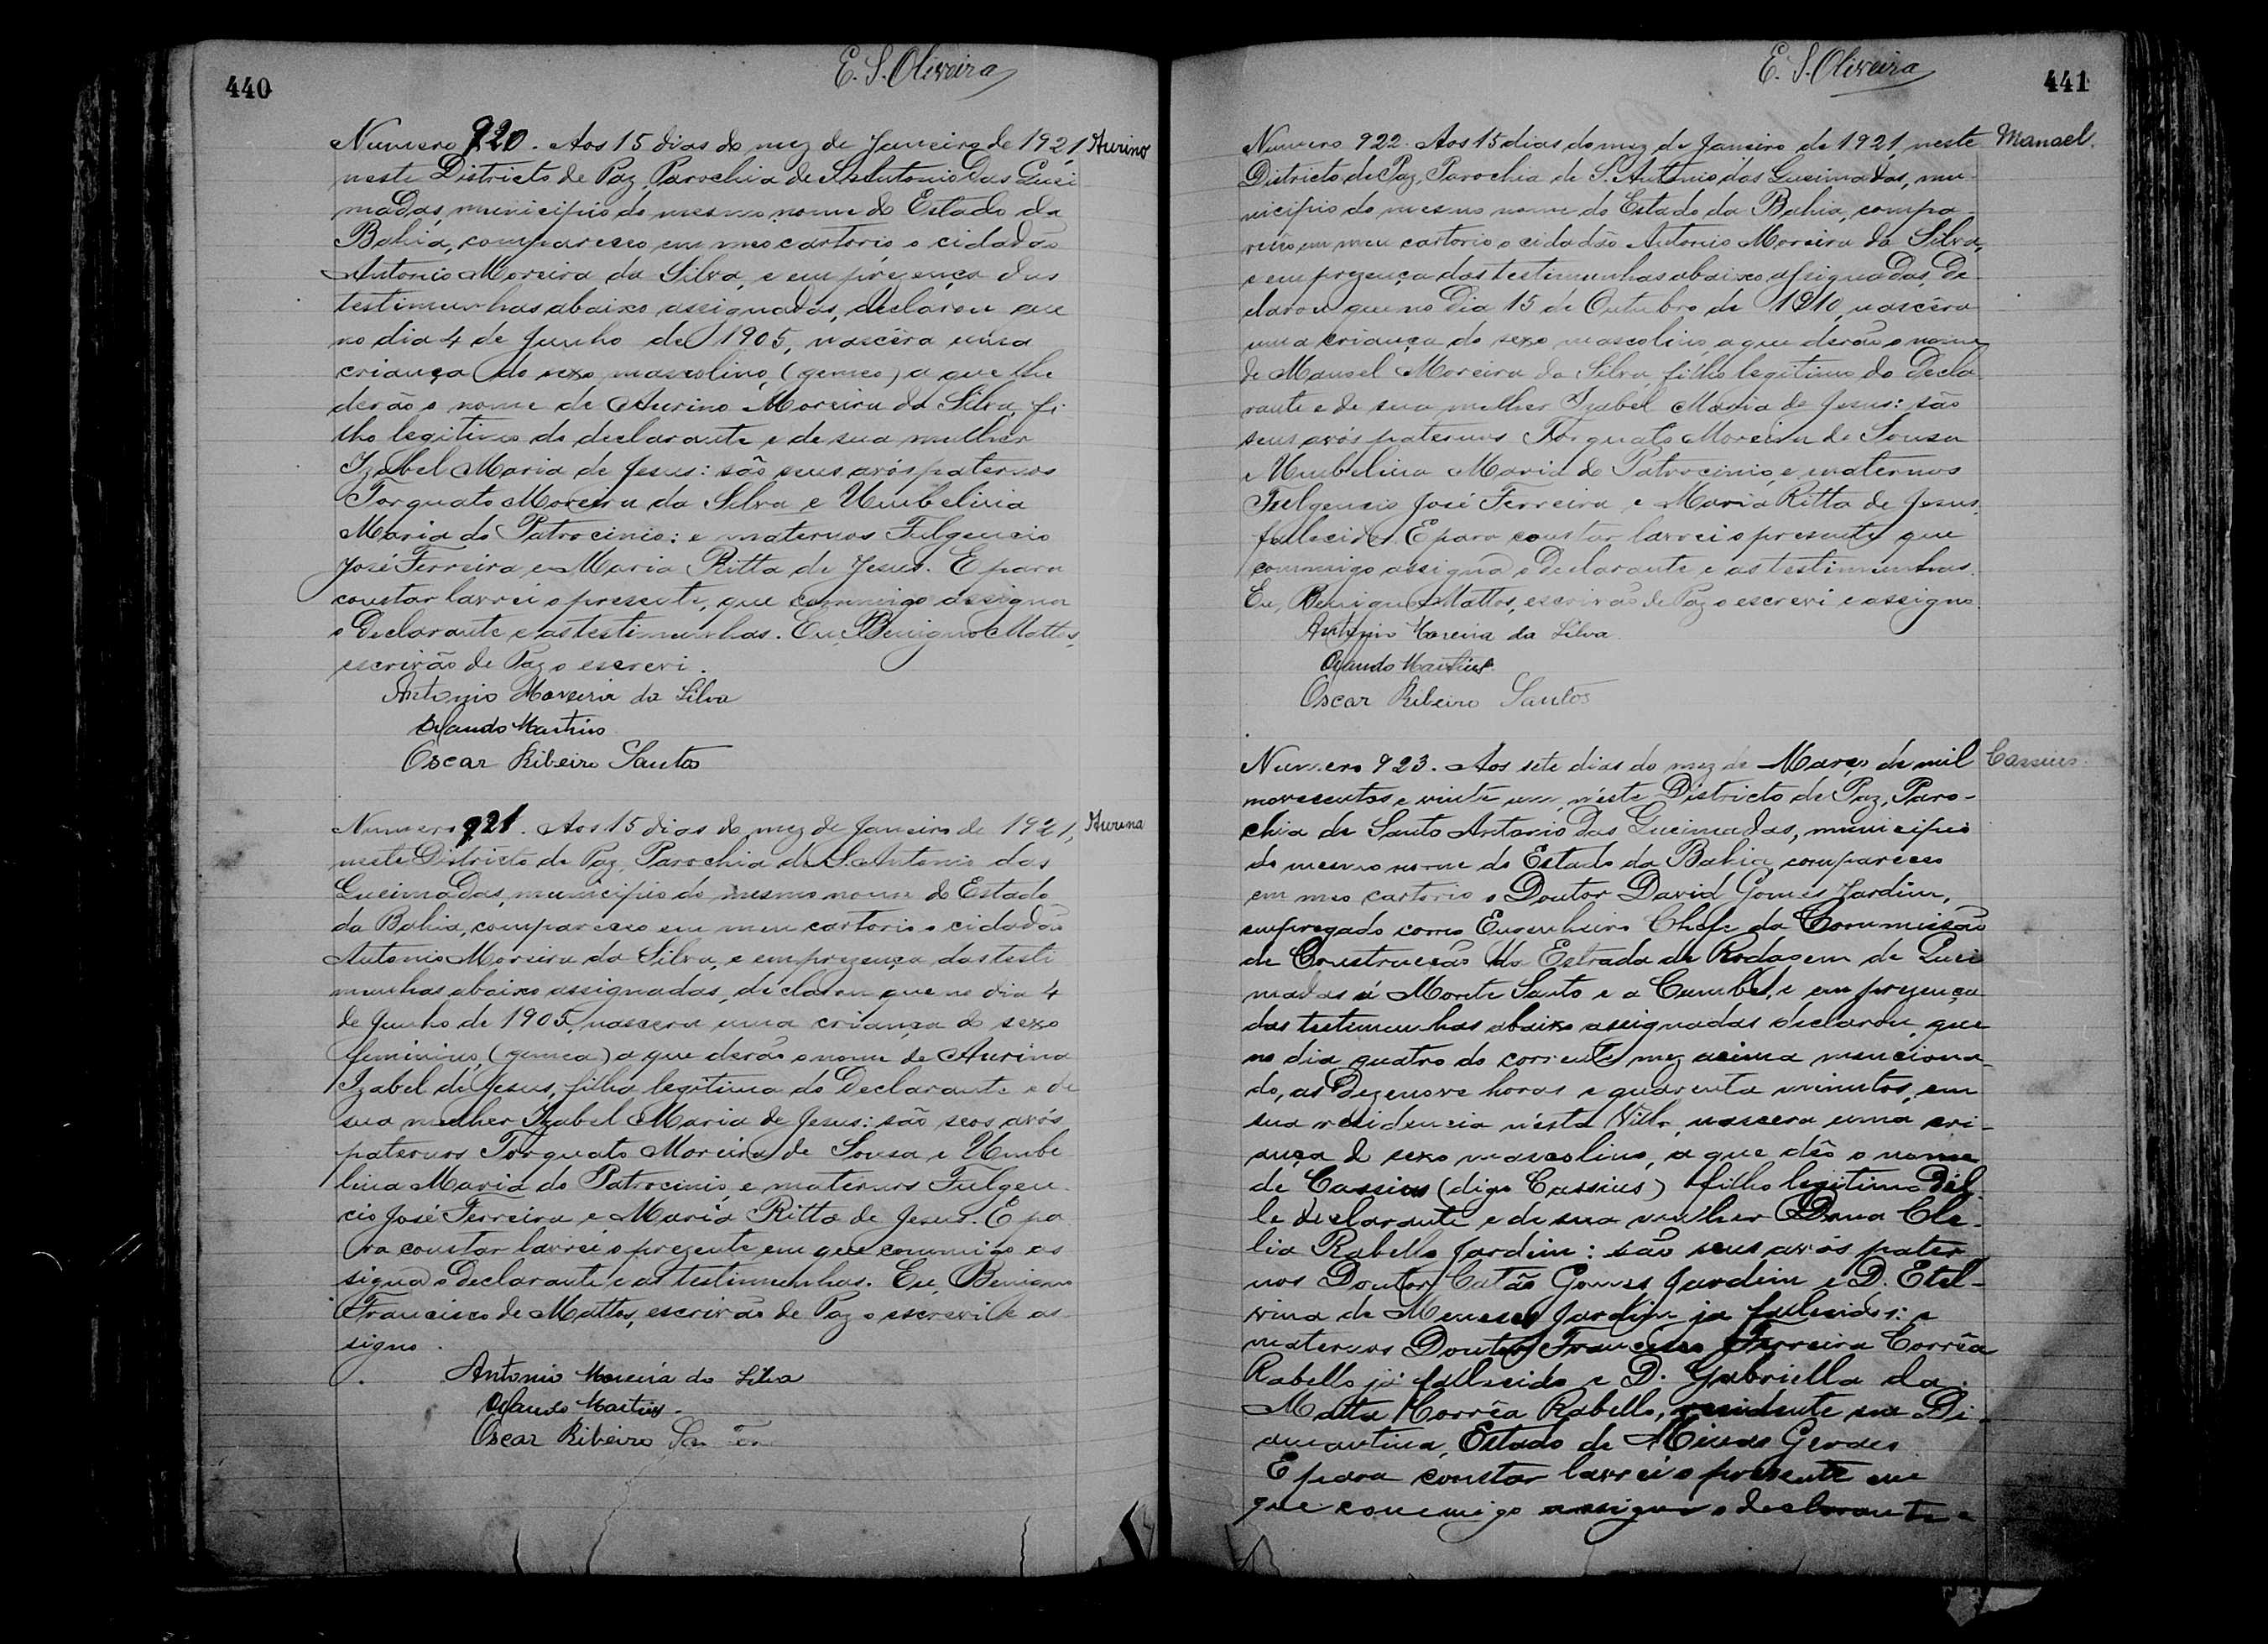 440
E. S. Oliveira
Numero 920. Aos 15 dias do mez de Janeiro de 1921, Aurino
neste Districto de Paz, Parochia de S. Antonio das Quei
madas, municipio do mesmo nome do Estado da
Bahia, compareceo em meo cartorio, o cidadão
Antonio Moreira da Silva, e em prezença das
testimunhas abaixo assignadas, declarou que
no dia 4 de Junho de 1905, nascêra uma
criança do sexo masculino, (gemeo) a que lhe
derão o nome de Aurino Moreira da Silva, fi
lho legitimo do declarante e de sua mulher
Izabel Maria de Jesus: são seus avós paternos
Torquato Moreira da Silva e Umbelina
Maria do Patrocinio: e maternos Fulgencio
José Ferreira e Maria Ritta de Jesus. E para
constar lavrei o presente, que commigo assigna
o Declarante e as testimunhas. Eu, Benigno Mattos,
escrivão de Paz o escrevi.
Antonio Moreira da Silva
Orlando Martins
Oscar Ribeiro Santos
Numero 921. Aos 15 dias do mez de Janeiro de 1921, Aurina
neste Districto de Paz, Parochia de S. Antonio das
Queimadas, municipio do mesmo nome do Estado
da Bahia, compareceo em meu cartorio o cidadão
Antonio Moreira da Silva, e em prezença das testi
munhas abaixo assignadas, declarou que no dia 4
de Junho de 1905, nascera uma criança do sexo
feminino, (gemea) a que derão o nome de Aurina
Izabel de Jesus, filha legitima do Declarante e de
sua mulher Izabel Maria de Jesus: são seos avós
paternos Torquato Moreira de Sousa e Umbe
lina Maria do Patrocinio, e maternos Fulgen
cio José Ferreira e Maria Ritta de Jesus. E pa
ra constar lavrei o prezente em que commigo as
signa o Declarante e as testimunhas. Eu, Benigno
Francisco de Mattos, escrivão de Paz o escrevi e as
signo.
Antonio Moreira da Silva
Orlando Martins.
Oscar Ribeiro Santos
E. S. Oliveira
441
Numero 922. Aos 15 dias do mez de Janeiro de 1921, neste Manoel.
Districto de Paz, Parochia de S. Antonio das Queimadas, mu
nicipio do mesmo nome do Estado da Bahia, compa
receo em meu cartorio o cidadão Antonio Moreira da Silva,
e em prezença das testimunhas abaixo assignadas, de
clarou que no dia 15 de Outubro de 1910, nascêra
uma criança do sexo masculino, a que derão o nome
de Manoel Moreira da Silva, filho legitimo do Decla
rante e de sua mulher Izabel Maria de Jesus: são
seus avós paternos Torquato Moreira de Sousa
e Umbelina Maria do Patrocinio, e maternos
Fulgencio José Ferreira e Maria Ritta de Jesus,
fallecidos. E para constar lavrei o presente que
commigo assigna o Declarante e as testimunhas.
Eu, Benigno Mattos, escrivão de Paz o escrevi e assigno.
Antonio Moreira da Silva
Orlando Martins.
Oscar Ribeiro Santos
Numero 923. Aos sete dias do mez de Março de mil Cassius.
novecentos e vinte um, n'este Districto de Paz, Paro-
chia de Santo Antonio das Queimadas, municipio
do mesmo nome do Estado da Bahia, compareceo
em meo cartorio o Doutor David Gomes Jardim,
empregado como Engenheiro Chefe da Commissão
de Construcção da Estrada de Rodagem de Quei
madas á Monte Santo e a Cumbe, e em prezença
das testimunhas abaixo assignadas declarou, que
no dia quatro do corrente mez acima menciona-
do, as Dezenove horas e quarenta minutos, em
sua residencia n'ésta Villa, nascera uma cri-
ança do sexo masculino, a que dão o nome
de Cassios (digo Cassius) filho legitimo del-
le declarante e de sua mulher Dona Cle-
lia Rabello Jardim: são seus avós pater
nos Doutor Catão Gomes Jardim e D. Etel-
vina de Meneses Jardim já fallecidos: e
maternos Doutor Francisco Ferreira Corrêa
Rabello já fallecido e D. Gabriella da
Matta Corrêa Rabello, residente em Di-
amantina, Estado de Minas Geraes.
E para constar lavrei o presente em
que commigo assigna o declarante e